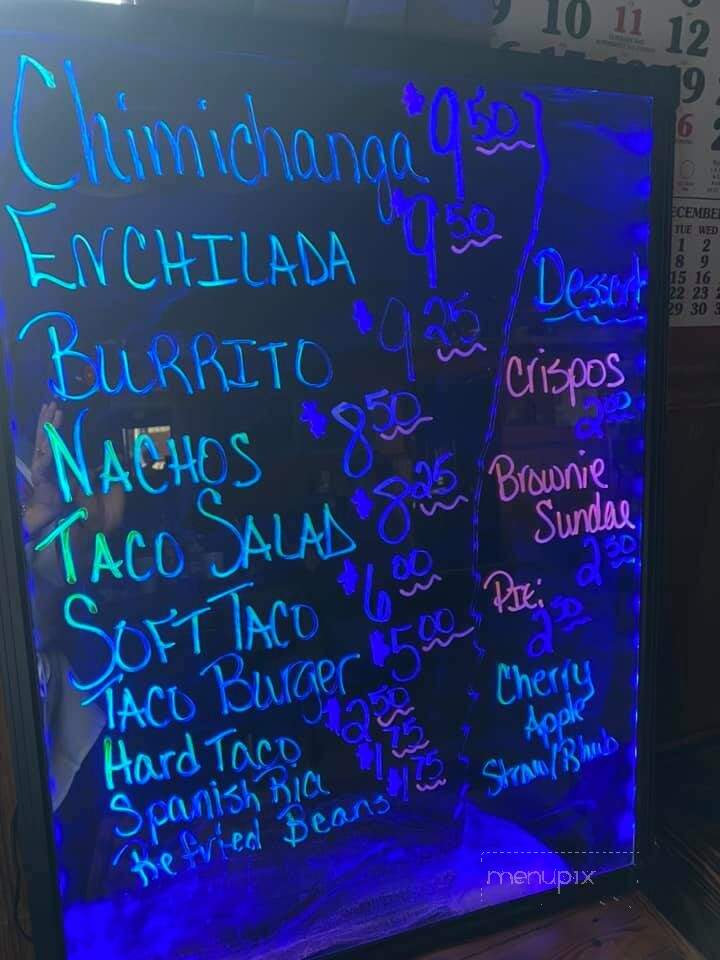 Chimichanga $9.50
ENCHILADA $9.50
BURRITO $9.25
NACHOS $8.50
TACO SALAD $8.25
SOFT TACO $6.00
TACO Burger $5.00
Hard Taco $2.50
Spanish Rice $1.75
Refried Beans $1.75
Dessert
Crispos
2.00
Brownie
Sundae
2.50
PIE:
2.50
Cherry
Apple
Straw/Rhub
9 10 11 12
DECEMBER
TUE WED
1 2
8 9
15 16
22 23
29 30
menupix